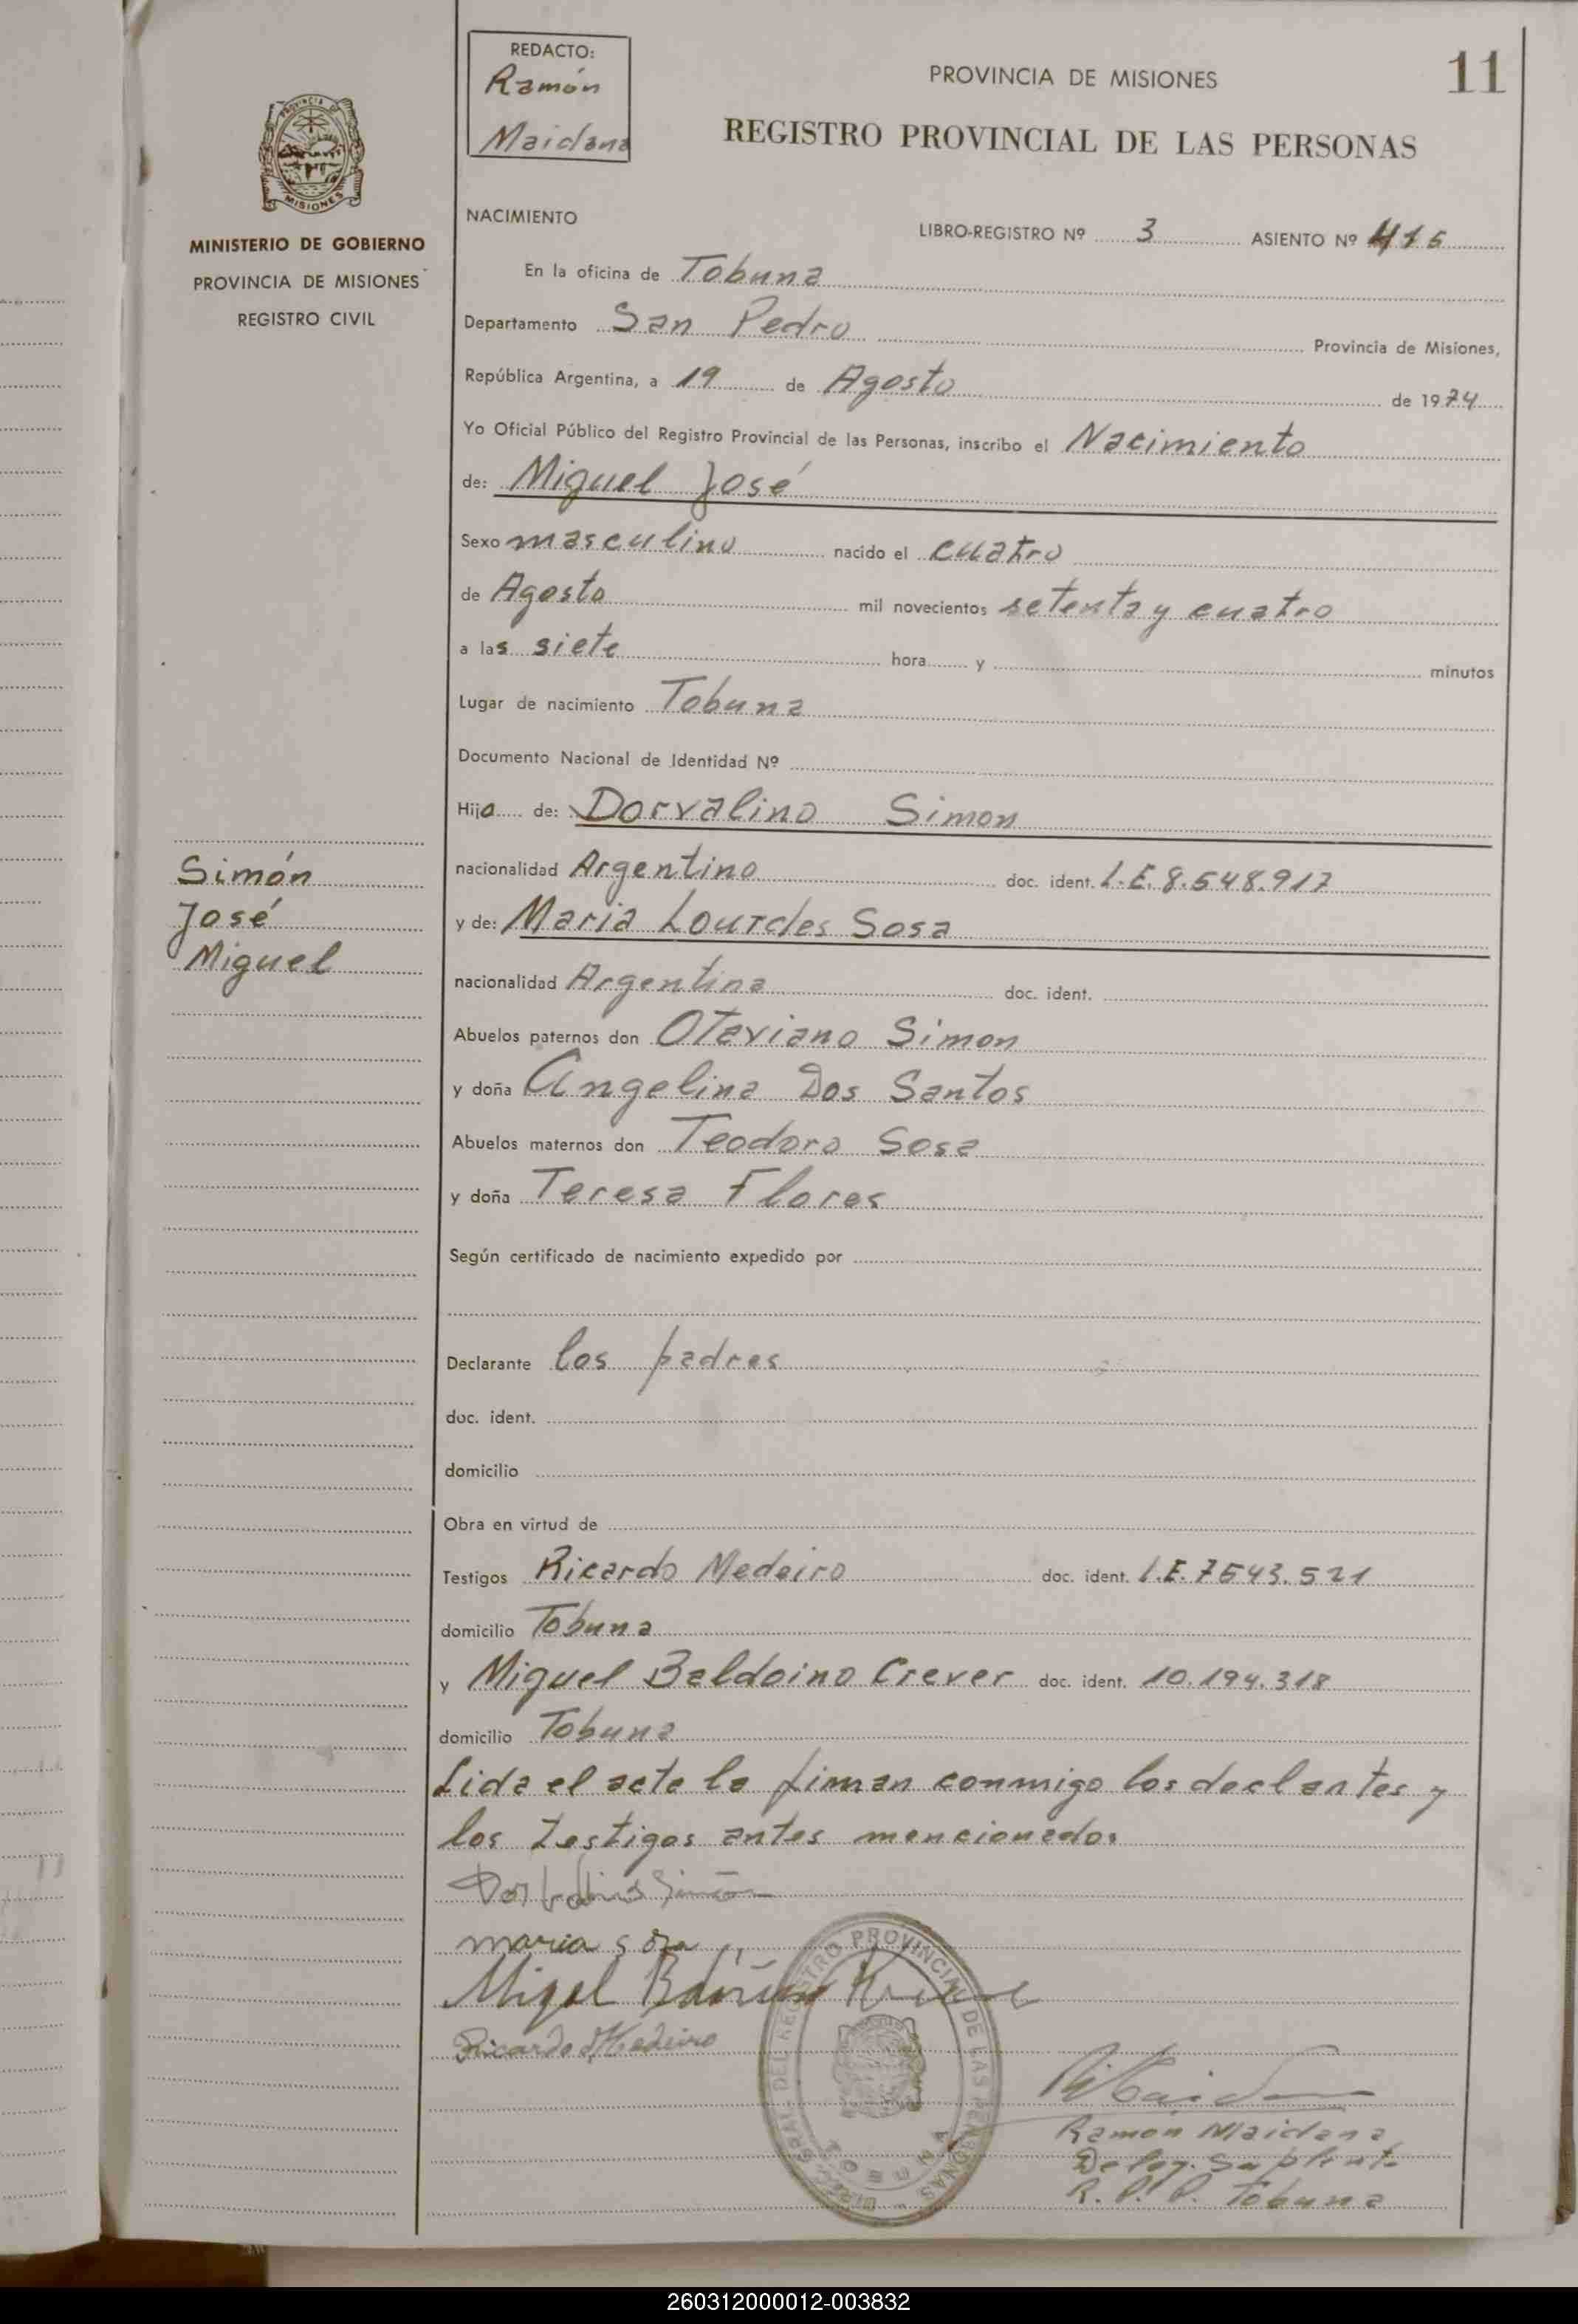 11
REDACTO:
Ramón
Maidana
PROVINCIA DE MISIONES
REGISTRO PROVINCIAL DE LAS PERSONAS
PROVINCIA DE
MISIONES
MINISTERIO DE GOBIERNO
PROVINCIA DE MISIONES
REGISTRO CIVIL
NACIMIENTO
LIBRO-REGISTRO Nº 3 ASIENTO Nº 415
En la oficina de Tobuna
Departamento San Pedro Provincia de Misiones,
República Argentina, a 19 de Agosto de 1974
Yo Oficial Público del Registro Provincial de las Personas, inscribo el Nacimiento
de: Miguel José
Sexo masculino nacido el cuatro
de Agosto mil novecientos setenta y cuatro
a las siete hora y minutos
Lugar de nacimiento Tobuna
Documento Nacional de Identidad Nº
Hijo de: Dorvalino Simon
nacionalidad Argentino doc. ident. L.E. 8.548.917
y de: Maria Lourdes Sosa
nacionalidad Argentina doc. ident.
Abuelos paternos don Otaviano Simon
y doña Angelina Dos Santos
Abuelos maternos don Teodoro Sosa
y doña Teresa Flores
Según certificado de nacimiento expedido por
Declarante los padres
doc. ident.
domicilio
Obra en virtud de
Testigos Ricardo Medeiro doc. ident. L.E. 7543.521
domicilio Tobuna
y Miguel Baldoino Crever doc. ident. 10.194.318
domicilio Tobuna
Lida el acta la fiman conmigo los declantes y
los testigos antes mencionados
Simón
José
Miguel
maria sosa
Migel
Ricardo Medeiro
DIREC. GRAL. DEL REGISTRO PROVINCIAL DE LAS PERSONAS
TOBUNA
Ramon Maidana
Deleg. Suplente
R. P. P. Tobuna
260312000012-003832